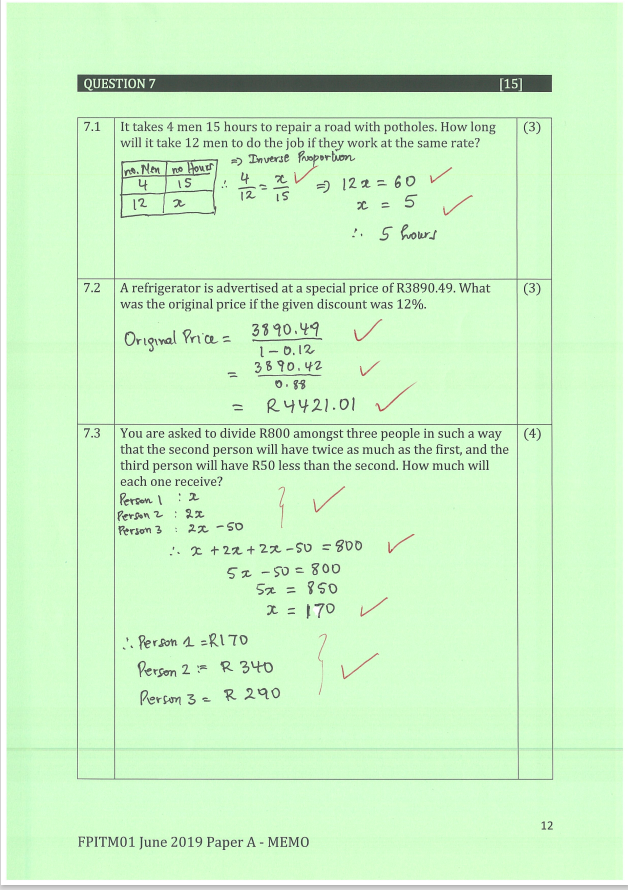 QUESTION 7 [15]
7.1 It takes 4 men 15 hours to repair a road with potholes. How long (3)
will it take 12 men to do the job if they work at the same rate?
⇒ Inverse Proportion
no. Men | no Hours
4 | 15
12 | x
∴ 4/12 = x/15 ⇒ 12x = 60
x = 5
∴ 5 hours
7.2 A refrigerator is advertised at a special price of R3890.49. What (3)
was the original price if the given discount was 12%.
Original Price = 3890.49 / 1 - 0.12
= 3890.42 / 0.88
= R4421.01
7.3 You are asked to divide R800 amongst three people in such a way (4)
that the second person will have twice as much as the first, and the
third person will have R50 less than the second. How much will
each one receive?
Person 1 : x
Person 2 : 2x
Person 3 : 2x - 50
∴ x + 2x + 2x - 50 = 800
5x - 50 = 800
5x = 850
x = 170
∴ Person 1 = R170
Person 2 := R 340
Person 3 = R 290
12
FPITM01 June 2019 Paper A - MEMO